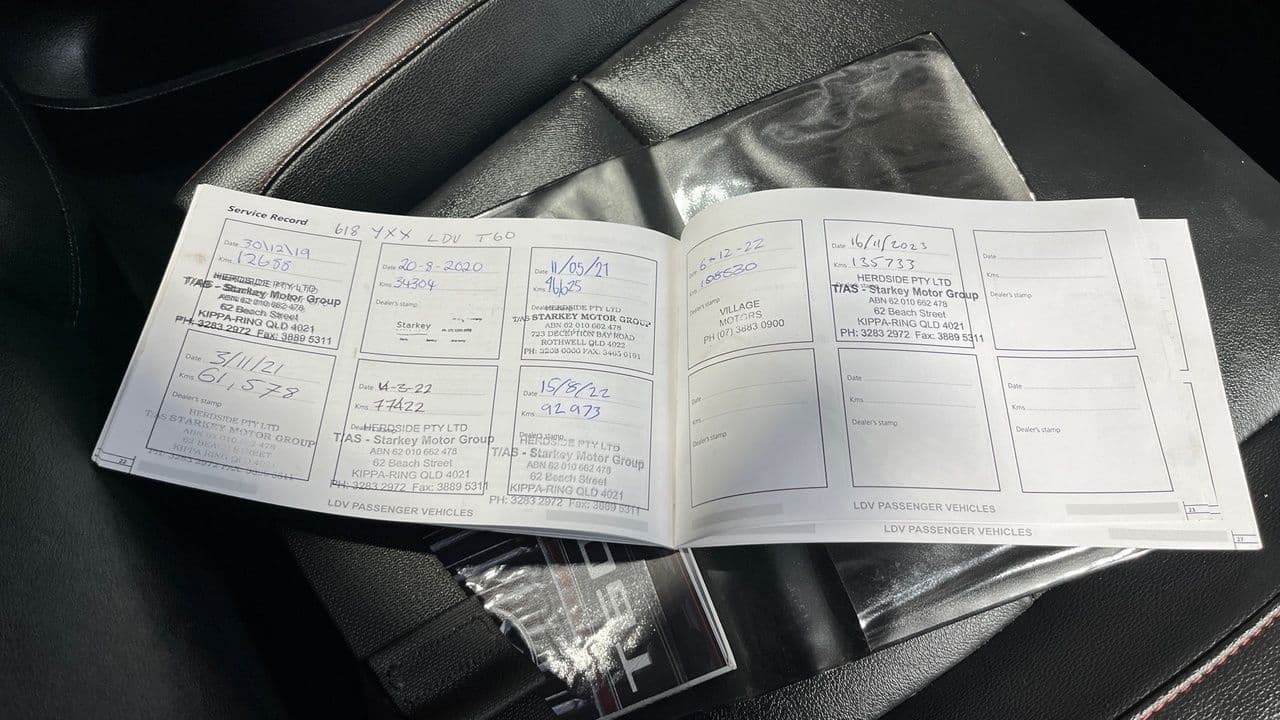 Service Record
618 YXX LDV T60
Date 30/12/19
Kms 12688
HERDSIDE PTY LTD
T/AS - Starkey Motor Group
ABN 62 010 662 478
62 Beach Street
KIPPA-RING QLD 4021
PH: 3283 2972 Fax: 3889 5311
Date 20-8-2020
Kms 34304
Dealer's stamp
Starkey
Date 11/05/21
Kms 46625
HERDSIDE PTY LTD
T/AS STARKEY MOTOR GROUP
ABN 62 010 662 478
723 DECEPTION BAY ROAD
ROTHWELL QLD 4022
Date 3/11/21
Kms 61,578
Dealer's stamp
HERDSIDE PTY LTD
T/AS STARKEY MOTOR GROUP
ABN 62 010 662 478
62 BEACH STREET
KIPPA-RING QLD 4021
PH: 3283 2972 FAX: 3889 5311
Date 4-3-22
Kms 77422
HERDSIDE PTY LTD
T/AS - Starkey Motor Group
ABN 62 010 662 478
62 Beach Street
KIPPA-RING QLD 4021
PH: 3283 2972 Fax: 3889 5311
Date 15/8/22
Kms 92973
HERDSIDE PTY LTD
T/AS - Starkey Motor Group
ABN 62 010 662 478
62 Beach Street
KIPPA-RING QLD 4021
PH: 3283 2972 Fax: 3889 5311
22
LDV PASSENGER VEHICLES
Date 6-12-22
Kms
Dealer's stamp
VILLAGE
MOTORS
PH (07) 3883 0900
Date 16/11/2023
Kms 135733
HERDSIDE PTY LTD
T/AS - Starkey Motor Group
ABN 62 010 662 478
62 Beach Street
KIPPA-RING QLD 4021
PH: 3283 2972 Fax: 3889 5311
Date
Kms
Dealer's stamp
Date
Kms
Dealer's stamp
Date
Kms
Dealer's stamp
Date
Kms
Dealer's stamp
LDV PASSENGER VEHICLES
23
LDV PASSENGER VEHICLES
27